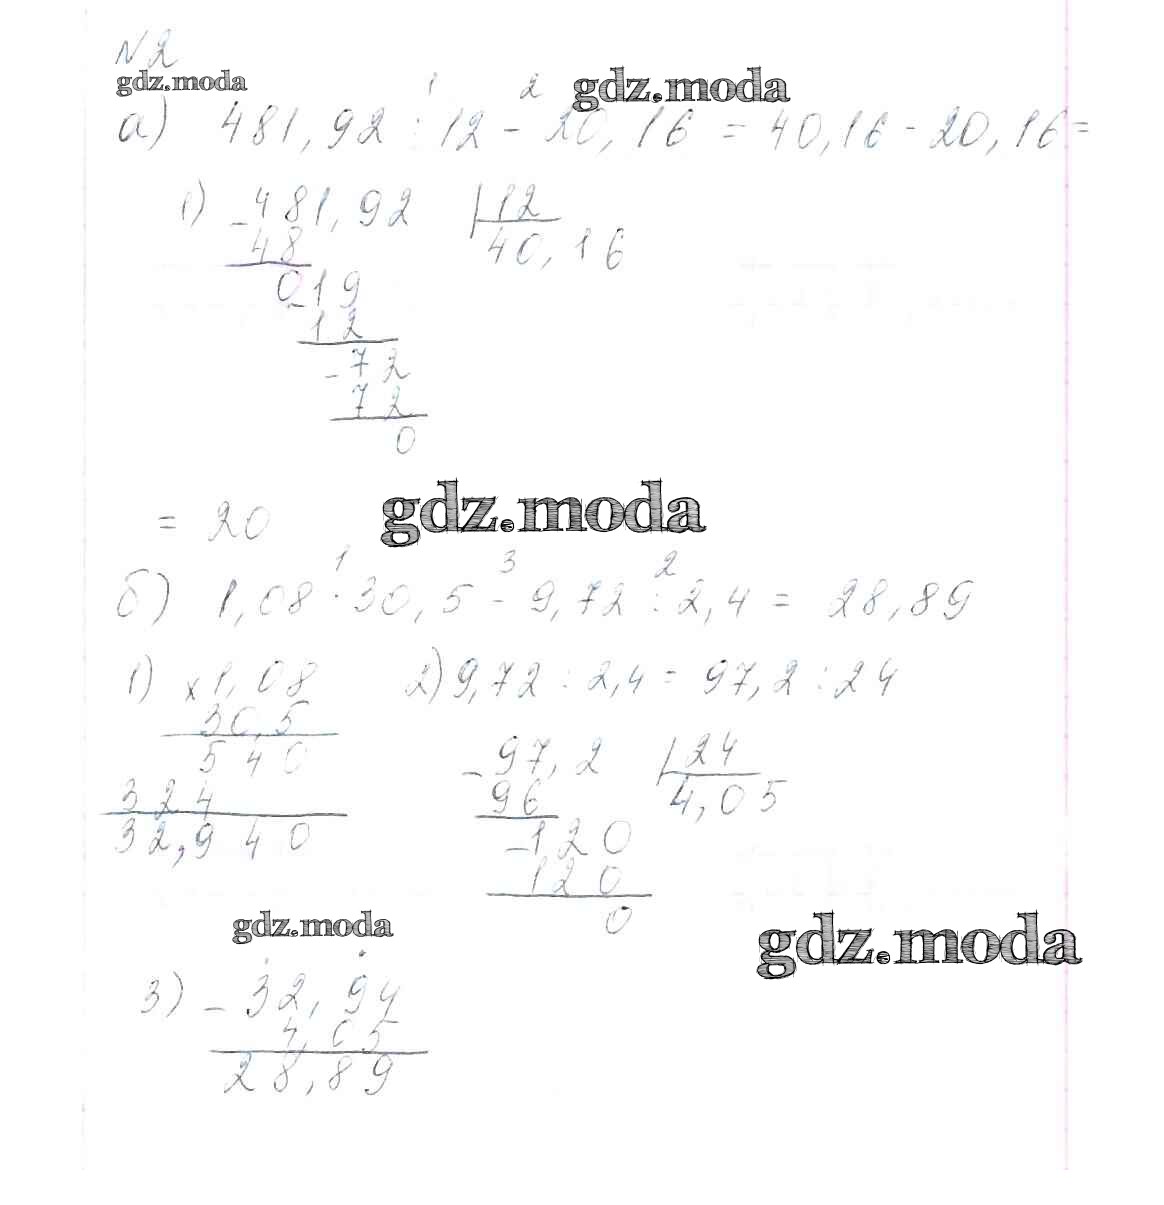 №2
gdz.moda
1 2 gdz.moda
а) 481,92 : 12 - 20,16 = 40,16 - 20,16 =
1) - 481,92 | 12
48 40,16
0 - 19
12
- 72
72
0
= 20 gdz.moda
1 3 2
б) 1,08 · 30,5 - 9,72 : 2,4 = 28,89
1) x 1,08 2) 9,72 : 2,4 = 97,2 : 24
30,5
540 - 97,2 | 24
324 96 4,05
32,940 - 120
120
0
gdz.moda
gdz.moda
3) - 32,94
4,05
28,89